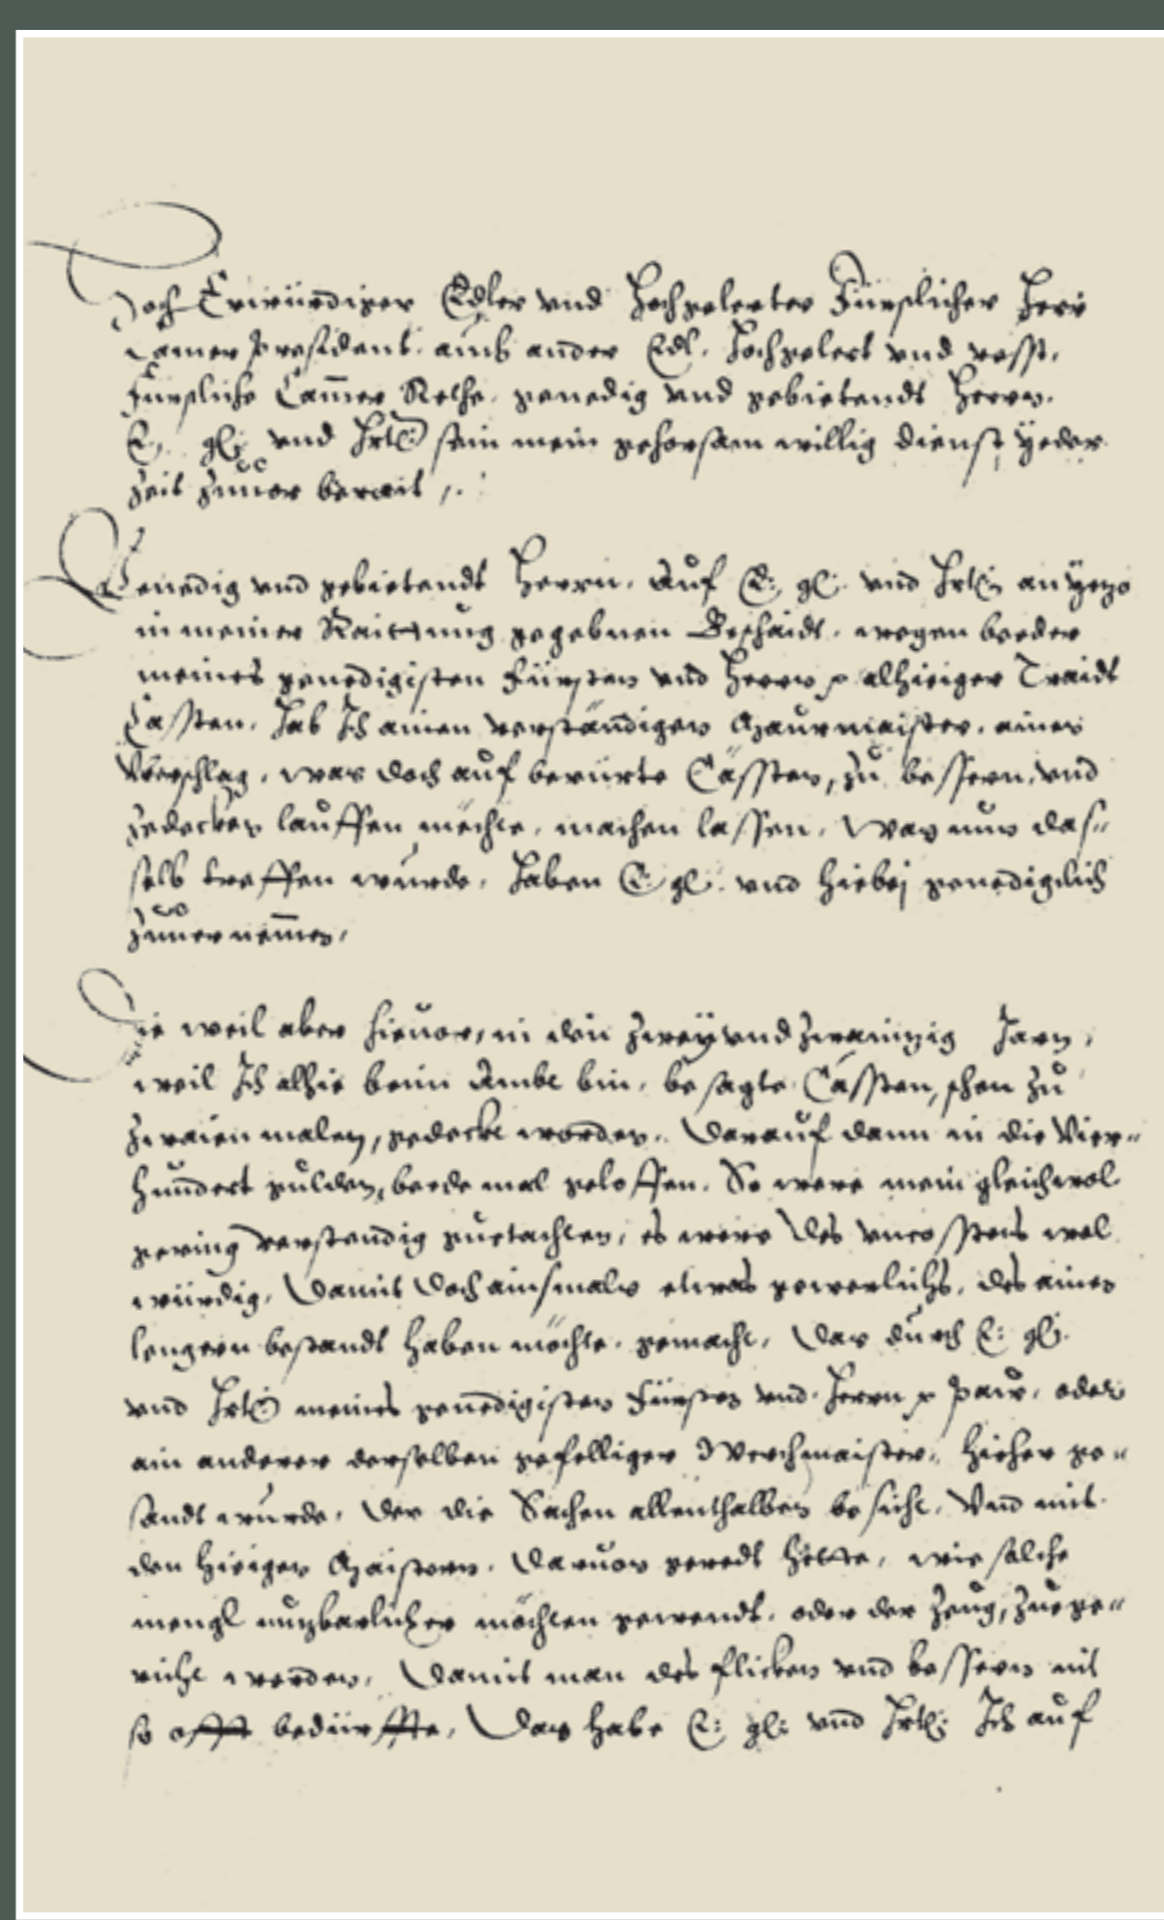 Hoch Erwürdiger Edler vnd Hochgelerter Fürstlicher Herr
Camer President. auch ander Edl. Hochgelert vnd vesst.
Fürstliche Cam̄er Rethe. genedig vnd gebietendt Herrn.
E. gl. vnd Hrl. sein mein gehorsam willig dienst yeder
Zeit Zuuor berait /.
Genedig vnd gebietendt Herrn. Auf E: gl. vnd Hrl. an yezo
in meiner Raittung gegebnen Beschaidt. wegen beeder
meines genedigisten Fürsten vnd Herrn alhieiger Traidt
Cässten. Hab Ich ainen verständigen Maurmaister. ainen
Vberschlag. was doch auf berürte Cässten, zu bessern. vnd
Zedeckhen lauffen möchte. machen lassen. Was nun das"
selb treffen wurde. Haben E. gl. vnd hiebej genedigclich
Zuuernem̄en.
Die weil aber hieuor, in den Zwey vnd Zwainzig Jarn,
weil Ich alhie beim Ambt bin. besagte Cässten, schon zu
Zwaien malen, gedeckt worden. Darauf dann in die Vier"
hundert gulden, beede mal geloffen. So were mein gleichwol
gering verstendig guetachten, es were des vncosstens wol
würdig. Damit doch ainsmals etwas gewerlichs. des ainen
lengern bestandt haben möchte. gemacht. Das durch E: gl.
vnd Hrl. meines genedigisten Fürsten vnd Herrn Paur. oder
ain anderer derselben gefelliger Werchmaister. hieher ge"
sandt wurde. Der die Sachen allenthalben besicht. Vnd mit
den hieigen Maistern. Dauon geredt hette. wie solche
mengl nuzbarlicher möchten gewendt. oder der Zeug, Zuege"
richt werden. Damit man des flickens vnd bessern nit
so offt bedürffte. Das habe E: gl: vnd Hrl: Ich auf